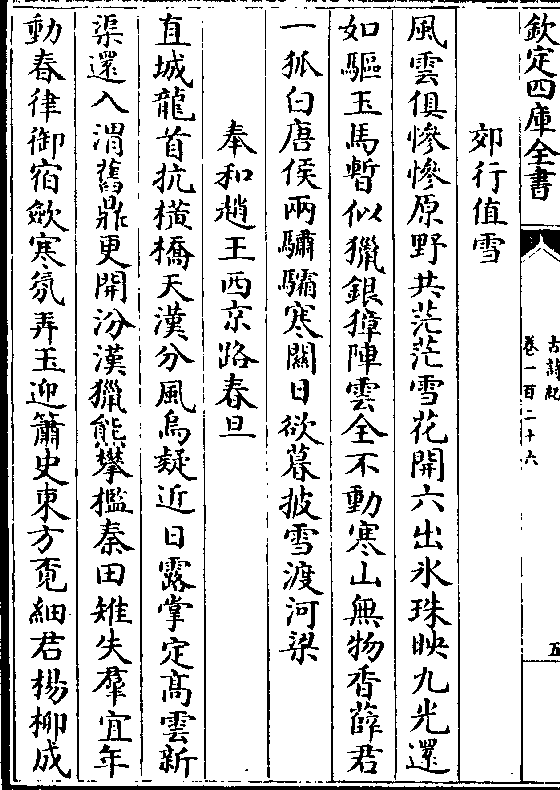 欽定四庫全書
古詩紀
卷一百二十六
五
郊行值雪
風雲俱慘慘原野共茫茫雪花開六出氷珠映九光還
如驅玉馬暫似獵銀獐陣雲全不動寒山無物香薛君
一狐白唐侯兩驌驦寒關日欲暮披雪渡河梁
奉和趙王西京路春旦
直城龍首抗橫橋天漢分風烏疑近日露掌定髙雲新
渠還入渭舊鼎更開汾漢獵熊攀檻秦田雉失羣宜年
動春律御宿歛寒氛弄玉迎簫史東方覔細君楊柳成